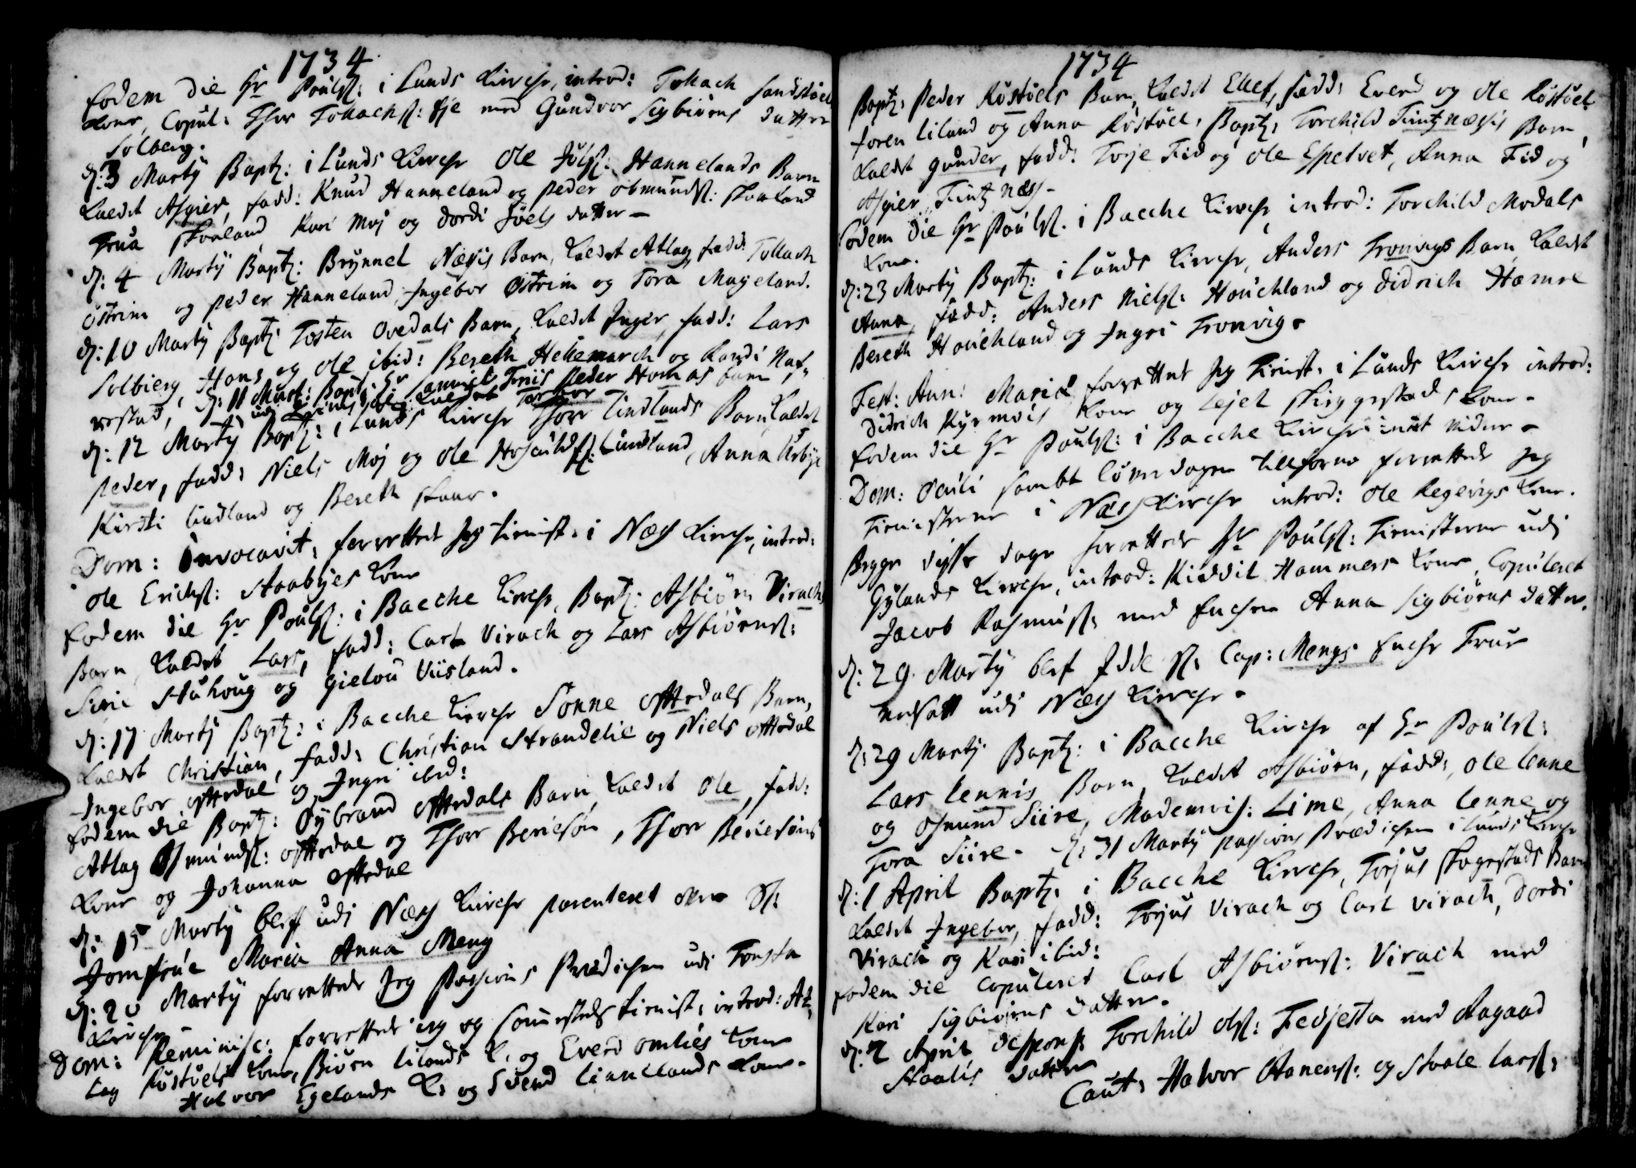 1734
Eodem die Hr Poulss: i Lunds Kirche, introd: Tollach Sandstøel
Kone, Copul: Thor Tollachss: Eje med Gundvor Sigbiørns datter
Solberg.
d: 3 Martÿ Bapt: i Lunds Kirche Ole Juls: Hannelands Barn
kaldet Asgier, fadd: Knud Hanneland og Peder Osmunds: Skaaland
Trua Skaaland Kari Moj og Dordi Joels datter -
d: 4 Martÿ Bapt: Brynnel Næsis Barn, kaldet Atlag, fadd: Tollach
Østrim og Peder Hanneland, Ingebor Østrim og Tora Mageland.
d: 10 Martÿ Bapt: Tosten Ovedals Barn, kaldet Inger, fadd: Lars
Solbierg, Hans og Ole ibid: Bereth Hellemarch og Randi Haf-
vestad, d: 11 Mart: Bapt: Hr Samuel Friis Peder Homas barn
d: 12 Martÿ Bapt: i Lunds Kirche Thore Lindlands Barn kaldet
Peder, fadd: Niels Moj og Ole Lindland, Anna Urbÿe
Kirsti Lindland og Bereth Skaar.
Dom: Invocavit, forrettet jeg tienist: i Næss Kirche, introd:
Ole Erichs: Staabÿes Kone
Eodem die Hr Poulss: i Bacche Kirche, Bapt: Asbiørn Virachs
Barn, kaldet Lars, fadd: Carl Virach og Lars Asbiørns:
Sirie Stuhoug og Gielou Viisland.
d: 17 Martÿ Bapt: i Bacche Kirche Sonne Oftedals Barn,
kaldet Christian, fadd: Christian Strandelie og Niels Oftedal
Ingebor Oftedal og Ingri ibid:
Eodem die Bapt: Sÿbrand Oftedals Barn kaldet Ole, fadd:
Atlag Osmunds: Oftedal og Thore Beriesøn, Thore Beriesøns
Kone og Johanna Oftedal
d: 15 Martÿ blef udj Næss Kirche parenteret over Sl:
Jomfrue Maria Anna Meng
d: 20 Martÿ forrettede Jeg Passions Prædichen udi Tonstad
Kirche
Dom: Reminisc: forrettede jeg og tienist: introd: At-
lag Røstøels Kone, Biørn Lilands K: og Everd Omlies Kone
Halvor Egelands K: og Svend Kone.

1734
Bapt: Peder Røstøels Barn, kaldet Ellef, fadd: Everd og Ole Røstøel
Joren Liland og Anna Røstøel, Bapt: Torchild Fintznæsis Barn,
kaldet Gunder, fadd: Torje Fid og Ole Espetvet, Anna Fid og
Asgier Fintznæs -
Eodem die Hr Poulss: i Bacche Kirche introd: Torchild Modals
Kone.
d: 23 Martÿ Bapt: i Lunds Kirche, Anders Tronvigs Barn, kaldet
Anna, fadd: Anders Niels: Houchland og Didrich Hamre
Bereth Houchland og Ingri Tronvig.
Fest: Ann: Mariæ forrettede jeg tienist: i Lunds Kirche introd:
Didrich Kone og Lejel Skiggestads Kone.
Eodem die Hr Poulss: i Bacche Kirche
Dom: Oculi sambt Løverdagen tilforne forrettede Jeg
tienisterne i Næss Kirche introd: Ole Regevigs Kone.
Begge disse dage forrettede Hr Poulss: tienisterne udj
Gÿlands Kirche, introd: Kiddil Hammers Kone, Copuleret
Jacob Rasmuss: med Enchen Anna Sigbiørns datter.
d: 29 Martÿ blef Sl: Cap: Mengs Enche Frue
nedsatt udj Næss Kirche.
d: 29 Martÿ Bapt: i Bacche Kirche af Hr Poulss:
Lars Lennis Barn, kaldet Asbiørn, fadd: Ole Lenne
og Osmund Siire, Mademois: Lime, Anna Lenne og
Tora Siire - d: 31 Martÿ passions Prædichen i Lunds Kirche
d: 1 April Bapt: i Bacche Kirche, Torjus Skogestads Barn
kaldet Ingebor, fadd: Torjus Virach og Carl Virach, Dordi
Virach og Kari ibid:
Eodem die Copuleret Carl Asbiørns: Virach med
Kari Sigbiørns datter.
d: 2 April Despons: Torchild Ols: Fedjestøl med Ragaad
Staalis datter
Caut: Halvor Aanens: og Staale Lars: